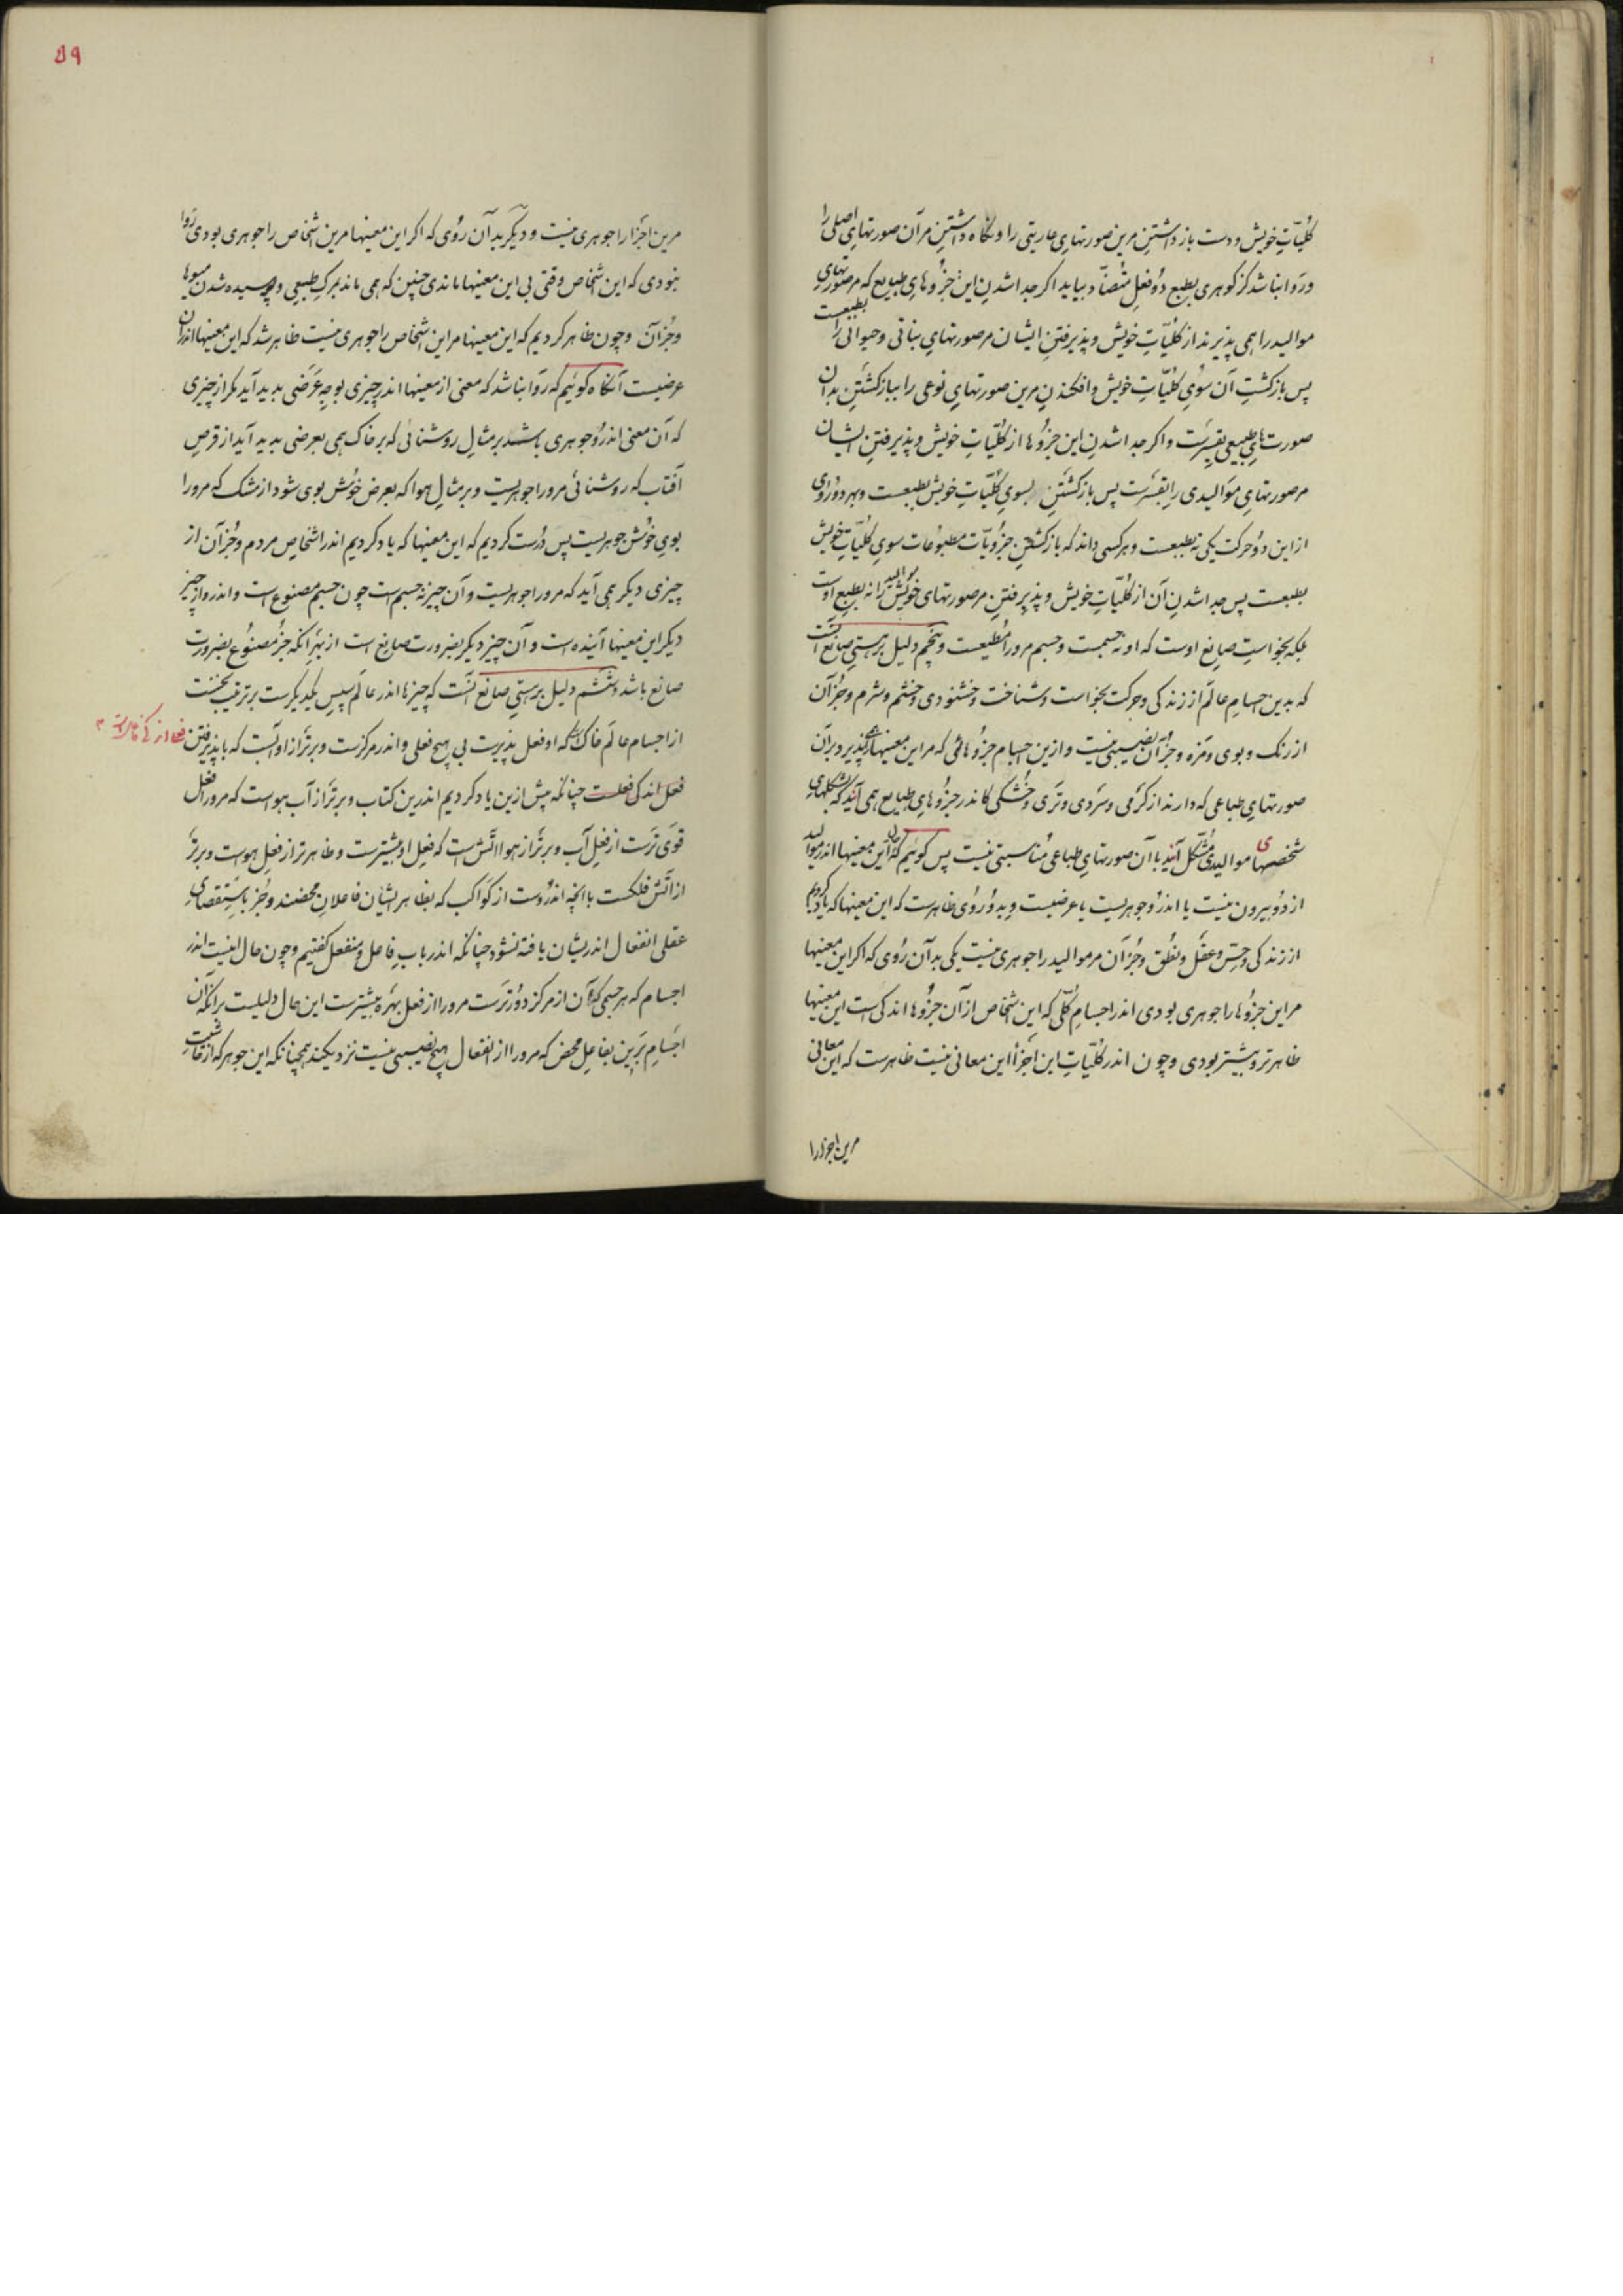 کلیّاتِ خویش و دست باز داشتنِ مرین صورتهایِ عاریتی را و نگاه داشتنِ مر آن صورتهایِ اصلی را
و روا نباشد کز گوهری بطبع دو فعلِ متضادّ بیاید اگر جدا شدنِ این جزوهایِ طبایع که مر صورتهایِ
موالید را همی پذیرند از کلیّاتِ خویش و پذیرفتنِ ایشان مر صورتهایِ نباتی و حیوانی را بطبعست
پس بازگشتِ آن سویِ کلیّاتِ خویش و افکندنِ مرین صورتهایِ نوعی را ببازگشتنِ بدان
صورت‌هایِ طبیعی بقسرست و اگر جدا شدنِ این جزوها از کلیّاتِ خویش و پذیرفتنِ ایشان
مر صورتهایِ موالیدی را بقسرست پس بازگشتن بسویِ کلیّاتِ خویش بطبعست و بهر دو روی
از این دو حرکت یکی نه بطبعست و هر کسی داند که بازگشتنِ جزویّات مطبوعات سویِ کلیّاتِ خویش
بطبعست پس جدا شدنِ آن از کلیّاتِ خویش و پذیرفتنِ مر صورتهای موالید خویش را نه بطبع اوست
بلکه بخواستِ صانع اوست که او نه جسمست و جسم مرو را مطیعست و پنجم دلیل برهستیِ صانع آنست
که بدین اجسامِ عالم از زندگی و حرکت بخواست و شناخت و خشنودی و خشم و شرم و جز آن
از رنگ و بوی و مزه و جز آن نصیبی نیست و ازین اجسام جزوهائی که مر این معنیها را همی پذیرد بر آن
صورتهایِ طباعی که دارند از گرمی و سردی و تری و خشکی کاندر جزوهایِ طبایع همی آیند که بشکلهایِ
شخصهای موالیدی مشکّل آیند با آن صورتهایِ طباعی مناسبتی نیست پس گوئیم که بودن این معنیها اندر موالید
از دو بیرون نیست یا اندرو جوهریست یا عرضیست و بدو روی ظاهرست که این معنیها که یاد کردیم
از زندگی و حسّ و عقل و نطق و جز آن مر موالید را جوهری نیست یکی بدآن روی که اگر این معنیها
مر این جزوها را جوهری بودی اندر اجسامِ کلّی که این اشخاص از آن جزوها اندکی است این معنیها
ظاهرتر و بیشتر بودی و چون اندر کلیّاتِ این اجزا این معانی نیست ظاهرست که این معانی
مرین اجزا را
۵۹
مرین اجزا را جوهری نیست و دیگر بدآن روی که اگر این معنیها مرین اشخاص را جوهری بودی روا
نبودی که این اشخاص وقتی بی این معنیها ماندی چنین که همی ماند بمرگِ طبیعی و پوسیده شدن میوها
و جز آن و چون ظاهر کردیم که این معنیها مر این اشخاص را جوهری نیست ظاهر شد که این معنیها اندر آن
عرضیست آنگاه گوئیم که روا نباشد که معنی از معنیها اندر چیزی بوجهِ عرضی بدید آید مگر از چیزی
که آن معنی اندرو جوهری باشد بر مثالِ روشنائی که بر خاک همی بعرضی بدید آید از قرصِ
آفتاب که روشنائی مرو را جوهریست و بر مثالِ هوا که بعرض خوش بوی شود از مشک که مرو را
بویِ خوش جوهریست پس درست کردیم که این معنیها که یاد کردیم اندر اشخاصِ مردم و جز آن از
چیزی دیگر همی آید که مرو را جوهریست و آن چیز نه جسم است چون جسم مصنوع است و اندرو از چیز
دیگر این معنیها آینده است و آن چیز دیگر بضرورت صانع است از بهر آنکه جز مصنوع بضرورت
صانع باشد و ششم دلیل برهستیِ صانع آنست که چیزها اندر عالم سپسِ یکدیگرست بر ترتیب نخست
از اجسام عالم خاک است که او فعل پذیرست بی هیچ فعلی و اندر مرکزست و برتر از او آبست که با پذیرفتن
فعل اندکی فعلست چنانکه پیش ازین یاد کردیم اندرین کتاب و برتر از آب هواست که مرو را فعل
قوی‌ترست از فعلِ آب و برتر از هوا آتش است که فعلِ او بیشترست و ظاهرتر از فعلِ هواست و برتر
از آتش فلکست با آنچه اندروست از کواکب که بظاهر ایشان فاعلانِ محضند و جز باستقصایِ
عقلی انفعال اندریشان یافته نشود چنانکه اندر بابِ فاعل و منفعل گفتیم و چون حال اینست اندر
اجسام که هر جسمی که آن از مرکز دورترست مرو را از فعل بهره بیشترست این حال دلیلست بر آنکه آن
اجسامِ برین بفاعلِ محض که مرو را از انفعال هیچ نصیبی نیست نزدیکند همچنانکه این جوهر که از فاعلیت